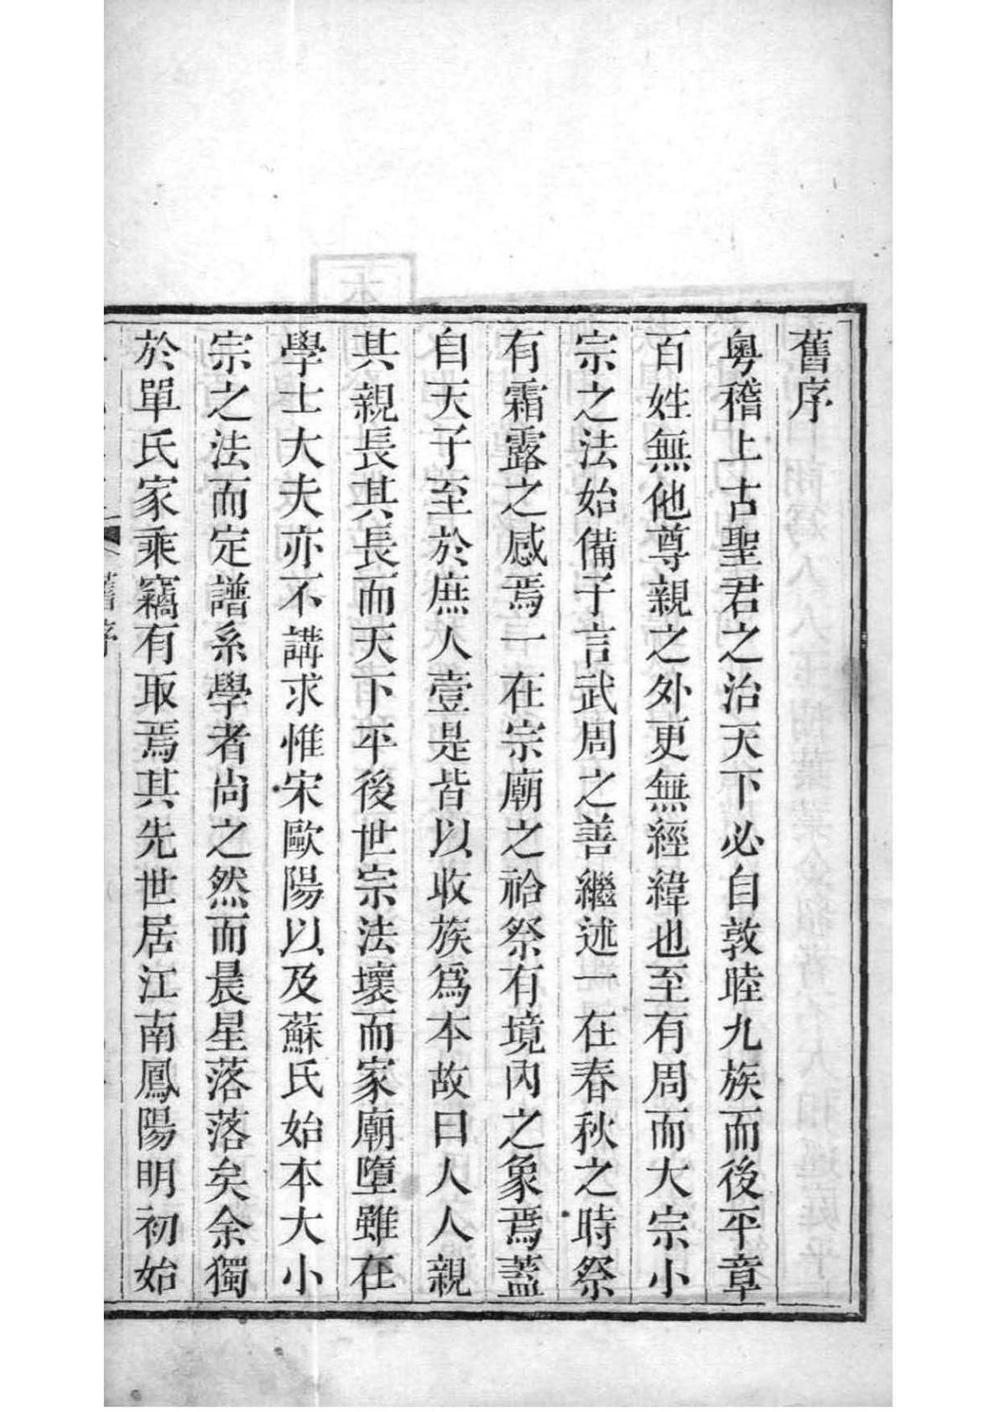 舊序
粵稽上古聖君之治天下必自敦睦九族而後平章
百姓無他尊親之外更無經緯也至有周而大宗小
宗之法始備子言武周之善繼述一在春秋之時祭
有霜露之感焉一在宗廟之祫祭有境內之象焉蓋
自天子至於庶人壹是皆以收族爲本故曰人人親
其親長其長而天下平後世宗法壞而家廟墮雖在
學士大夫亦不講求惟宋歐陽以及蘇氏始本大小
宗之法而定譜系學者尙之然而晨星落落矣余獨
於單氏家乘竊有取焉其先世居江南鳳陽明初始
舊序